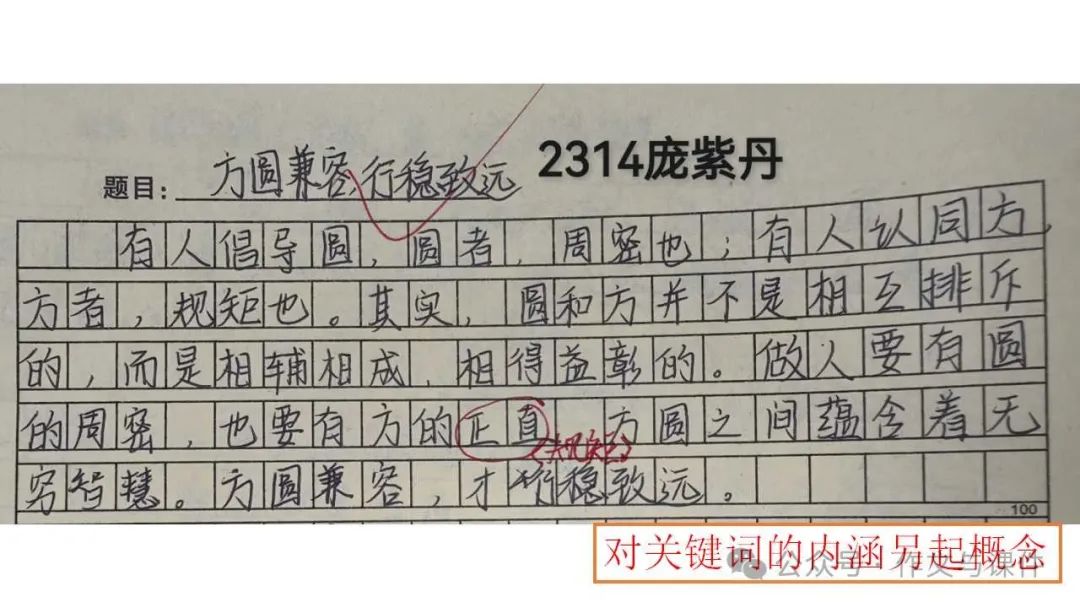 2314庞紫丹
题目：方圆兼容,行稳致远
有人倡导圆，圆者，周密也；有人认同方，
方者，规矩也。其实，圆和方并不是相互排斥
的，而是相辅相成、相得益彰的。做人要有圆
的周密，也要有方的正直 方圆之间蕴含着无
(规矩)
穷智慧。方圆兼容，才行稳致远。
100
对关键词的内涵另起概念
公众号·作文与课件